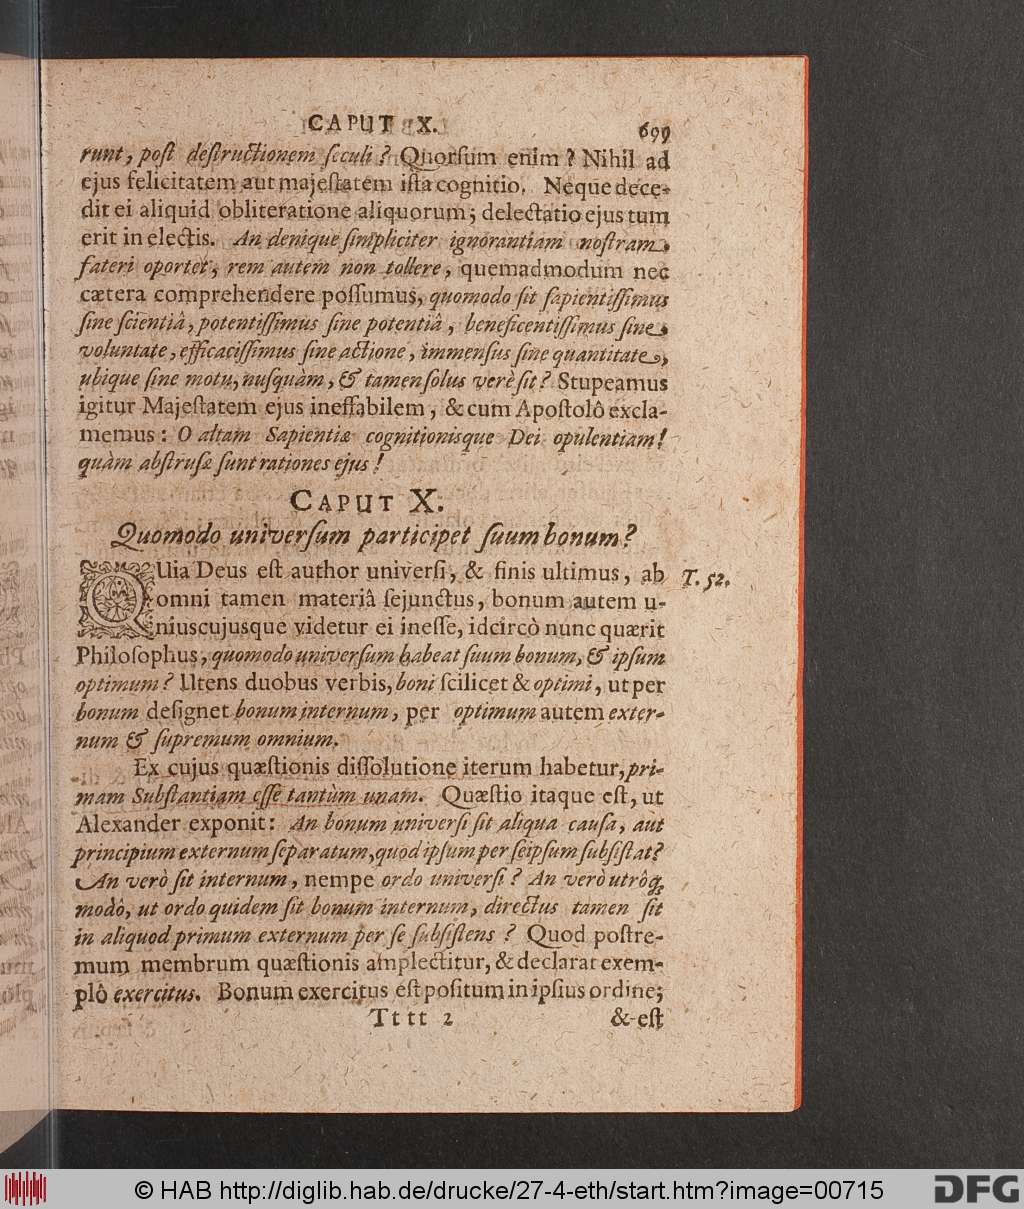 CAPUT X. 699
runt, poſt deſtructionem ſeculi? Quorſum enim? Nihil ad
ejus felicitatem aut majeſtatem iſta cognitio. Neque dece-
dit ei aliquid obliteratione aliquorum; delectatio ejus tum
erit in electis. An denique ſimpliciter ignorantiam noſtram
fateri oportet, rem autem non tollere, quemadmodum nec
cætera comprehendere poſſumus, quomodo ſit ſapientiſſimus
ſine ſcientiâ, potentiſſimus ſine potentiâ, beneficentiſſimus ſine
voluntate, efficaciſſimus ſine actione, immenſus ſine quantitate,
ubique ſine motu, nuſquàm, & tamen ſolus verè ſit? Stupeamus
igitur Majeſtatem ejus ineffabilem, & cum Apoſtolô excla-
memus: O altam Sapientiæ cognitionisque Dei opulentiam!
quàm abſtruſæ ſunt rationes ejus!
CAPUT X.
Quomodo univerſum participet ſuum bonum?
QUia Deus eſt author univerſi, & finis ultimus, ab T. 52.
omni tamen materiâ ſejunctus, bonum autem u-
niuscujusque videtur ei ineſſe, idcircò nunc quærit
Philoſophus, quomodo univerſum habeat ſuum bonum, & ipſum
optimum? Utens duobus verbis, boni ſcilicet & optimi, ut per
bonum deſignet bonum internum, per optimum autem exter-
num & ſupremum omnium.
Ex cujus quæſtionis diſſolutione iterum habetur, pri-
mam Subſtantiam eſſe tantùm unam. Quæſtio itaque eſt, ut
Alexander exponit: An bonum univerſi ſit aliqua cauſa, aut
principium externum ſeparatum, quod ipſum per ſeipſum ſubſiſtat?
An verò ſit internum, nempe ordo univerſi? An verò utrôq́;
modô, ut ordo quidem ſit bonum internum, directus tamen ſit
in aliquod primum externum per ſe ſubſiſtens? Quod poſtre-
mum membrum quæſtionis amplectitur, & declarat exem-
plô exercitus. Bonum exercitus eſt poſitum in ipſius ordine;
Tttt 2 & eſt
© HAB http://diglib.hab.de/drucke/27-4-eth/start.htm?image=00715 DFG